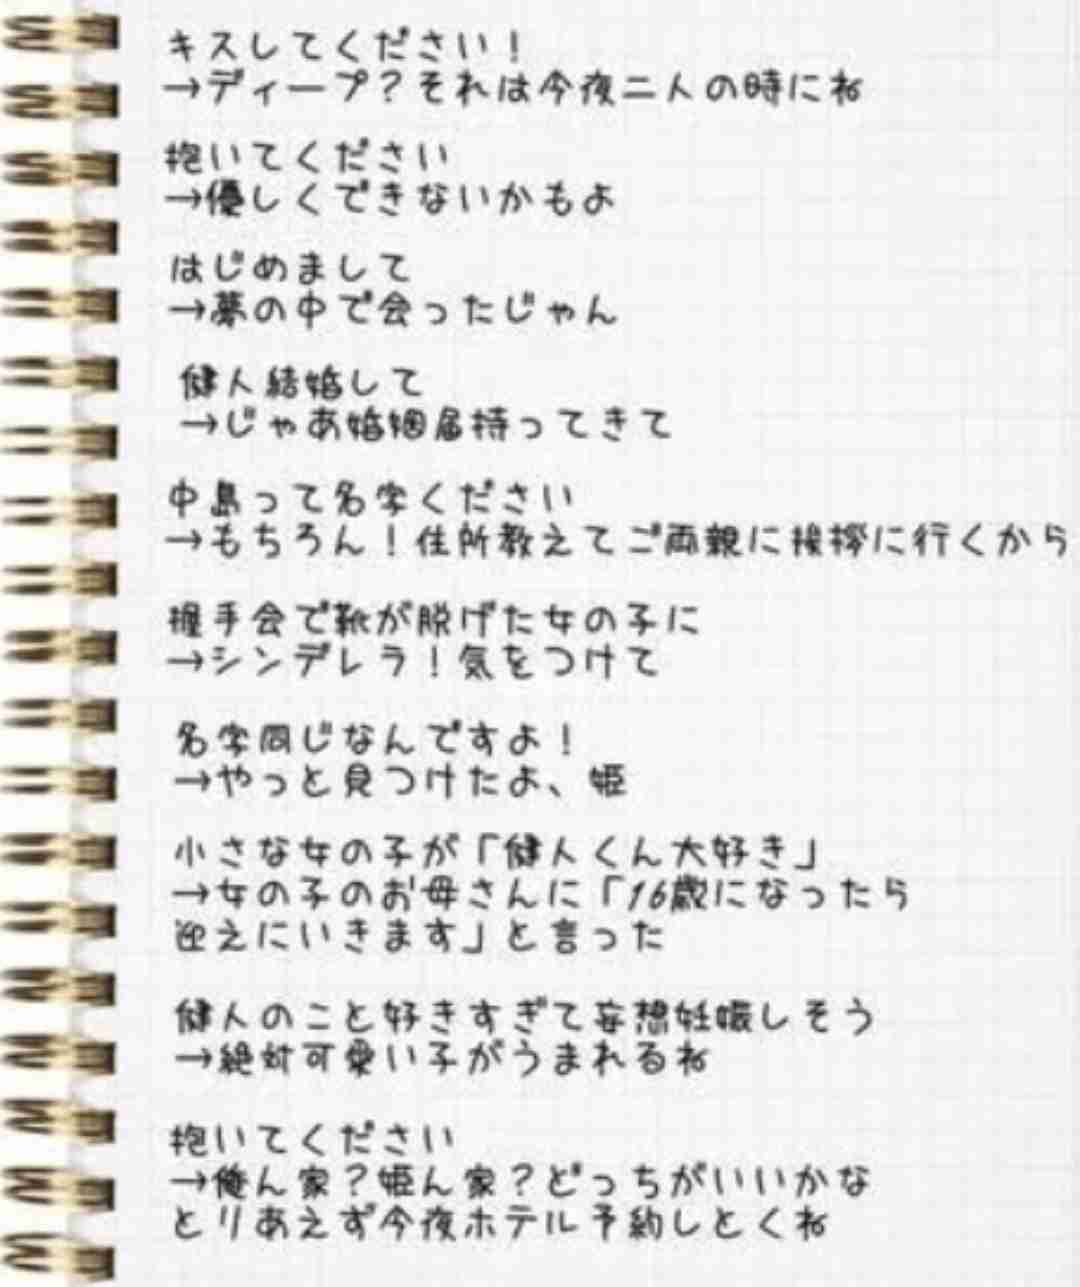 キスしてください！
→ディープ？それは今夜二人の時にね
抱いてください
→優しくできないかもよ
はじめまして
→夢の中で会ったじゃん
健人結婚して
→じゃあ婚姻届持ってきて
中島って名字ください
→もちろん！住所教えてご両親に挨拶に行くから
握手会で靴が脱げた女の子に
→シンデレラ！気をつけて
名字同じなんですよ！
→やっと見つけたよ、姫
小さな女の子が「健人くん大好き」
→女の子のお母さんに「16歳になったら
迎えにいきます」と言った
健人のこと好きすぎて妄想妊娠しそう
→絶対可愛い子がうまれるね
抱いてください
→俺ん家？姫ん家？どっちがいいかな
とりあえず今夜ホテル予約しとくね